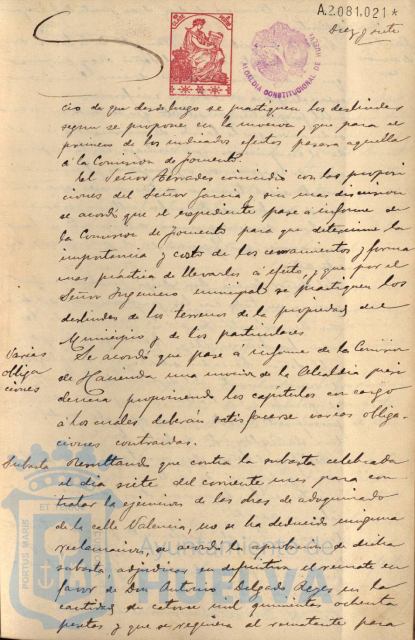 A.2.081.021*
Diez y siete
ALCALDIA CONSTITUCIONAL DE HUELVA
cio de que desde luego se practiquen los deslindes
segun se propone en la mocion y que para el
primero de los indicados efectos pasara aquella
á la Comision de fomento.
El Señor Herrades coincidió con las proposi
ciones del Señor Garcia y sin mas discusion
se acordó que el expediente pase á informe de
la Comision de fomento para que determine la
importancia y costo de los cerramientos y forma
mas práctica de llevarlos á efecto, y que por el
Señor Ingeniero municipal se practiquen los
deslindes de los terrenos de la propiedad del
Municipio y de los particulares
Varias
obliga
ciones
Se acordó que pase á informe de la Comision
de Hacienda una mocion de la Alcaldia presi
dencia proponiendo los capítulos con cargo
á los cuales deberán satisfacerse varias obliga
ciones contraidas.
Subasta
Resultando que contra la subasta celebrada
el dia siete del corriente mes para con
tratar la ejecucion de las obras de adoquinado
de la calle Valencia, no se ha deducido ninguna
reclamacion, se acordó la aprobacion de dicha
subasta, adjudicar en definitiva el remate en
favor de Don Antonio Delgado Reyes en la
cantidad de catorce mil quinientas ochenta
pesetas y que se requiera al rematante para
PORTUS MARIS ET
Ayuntamiento de
HUELVA